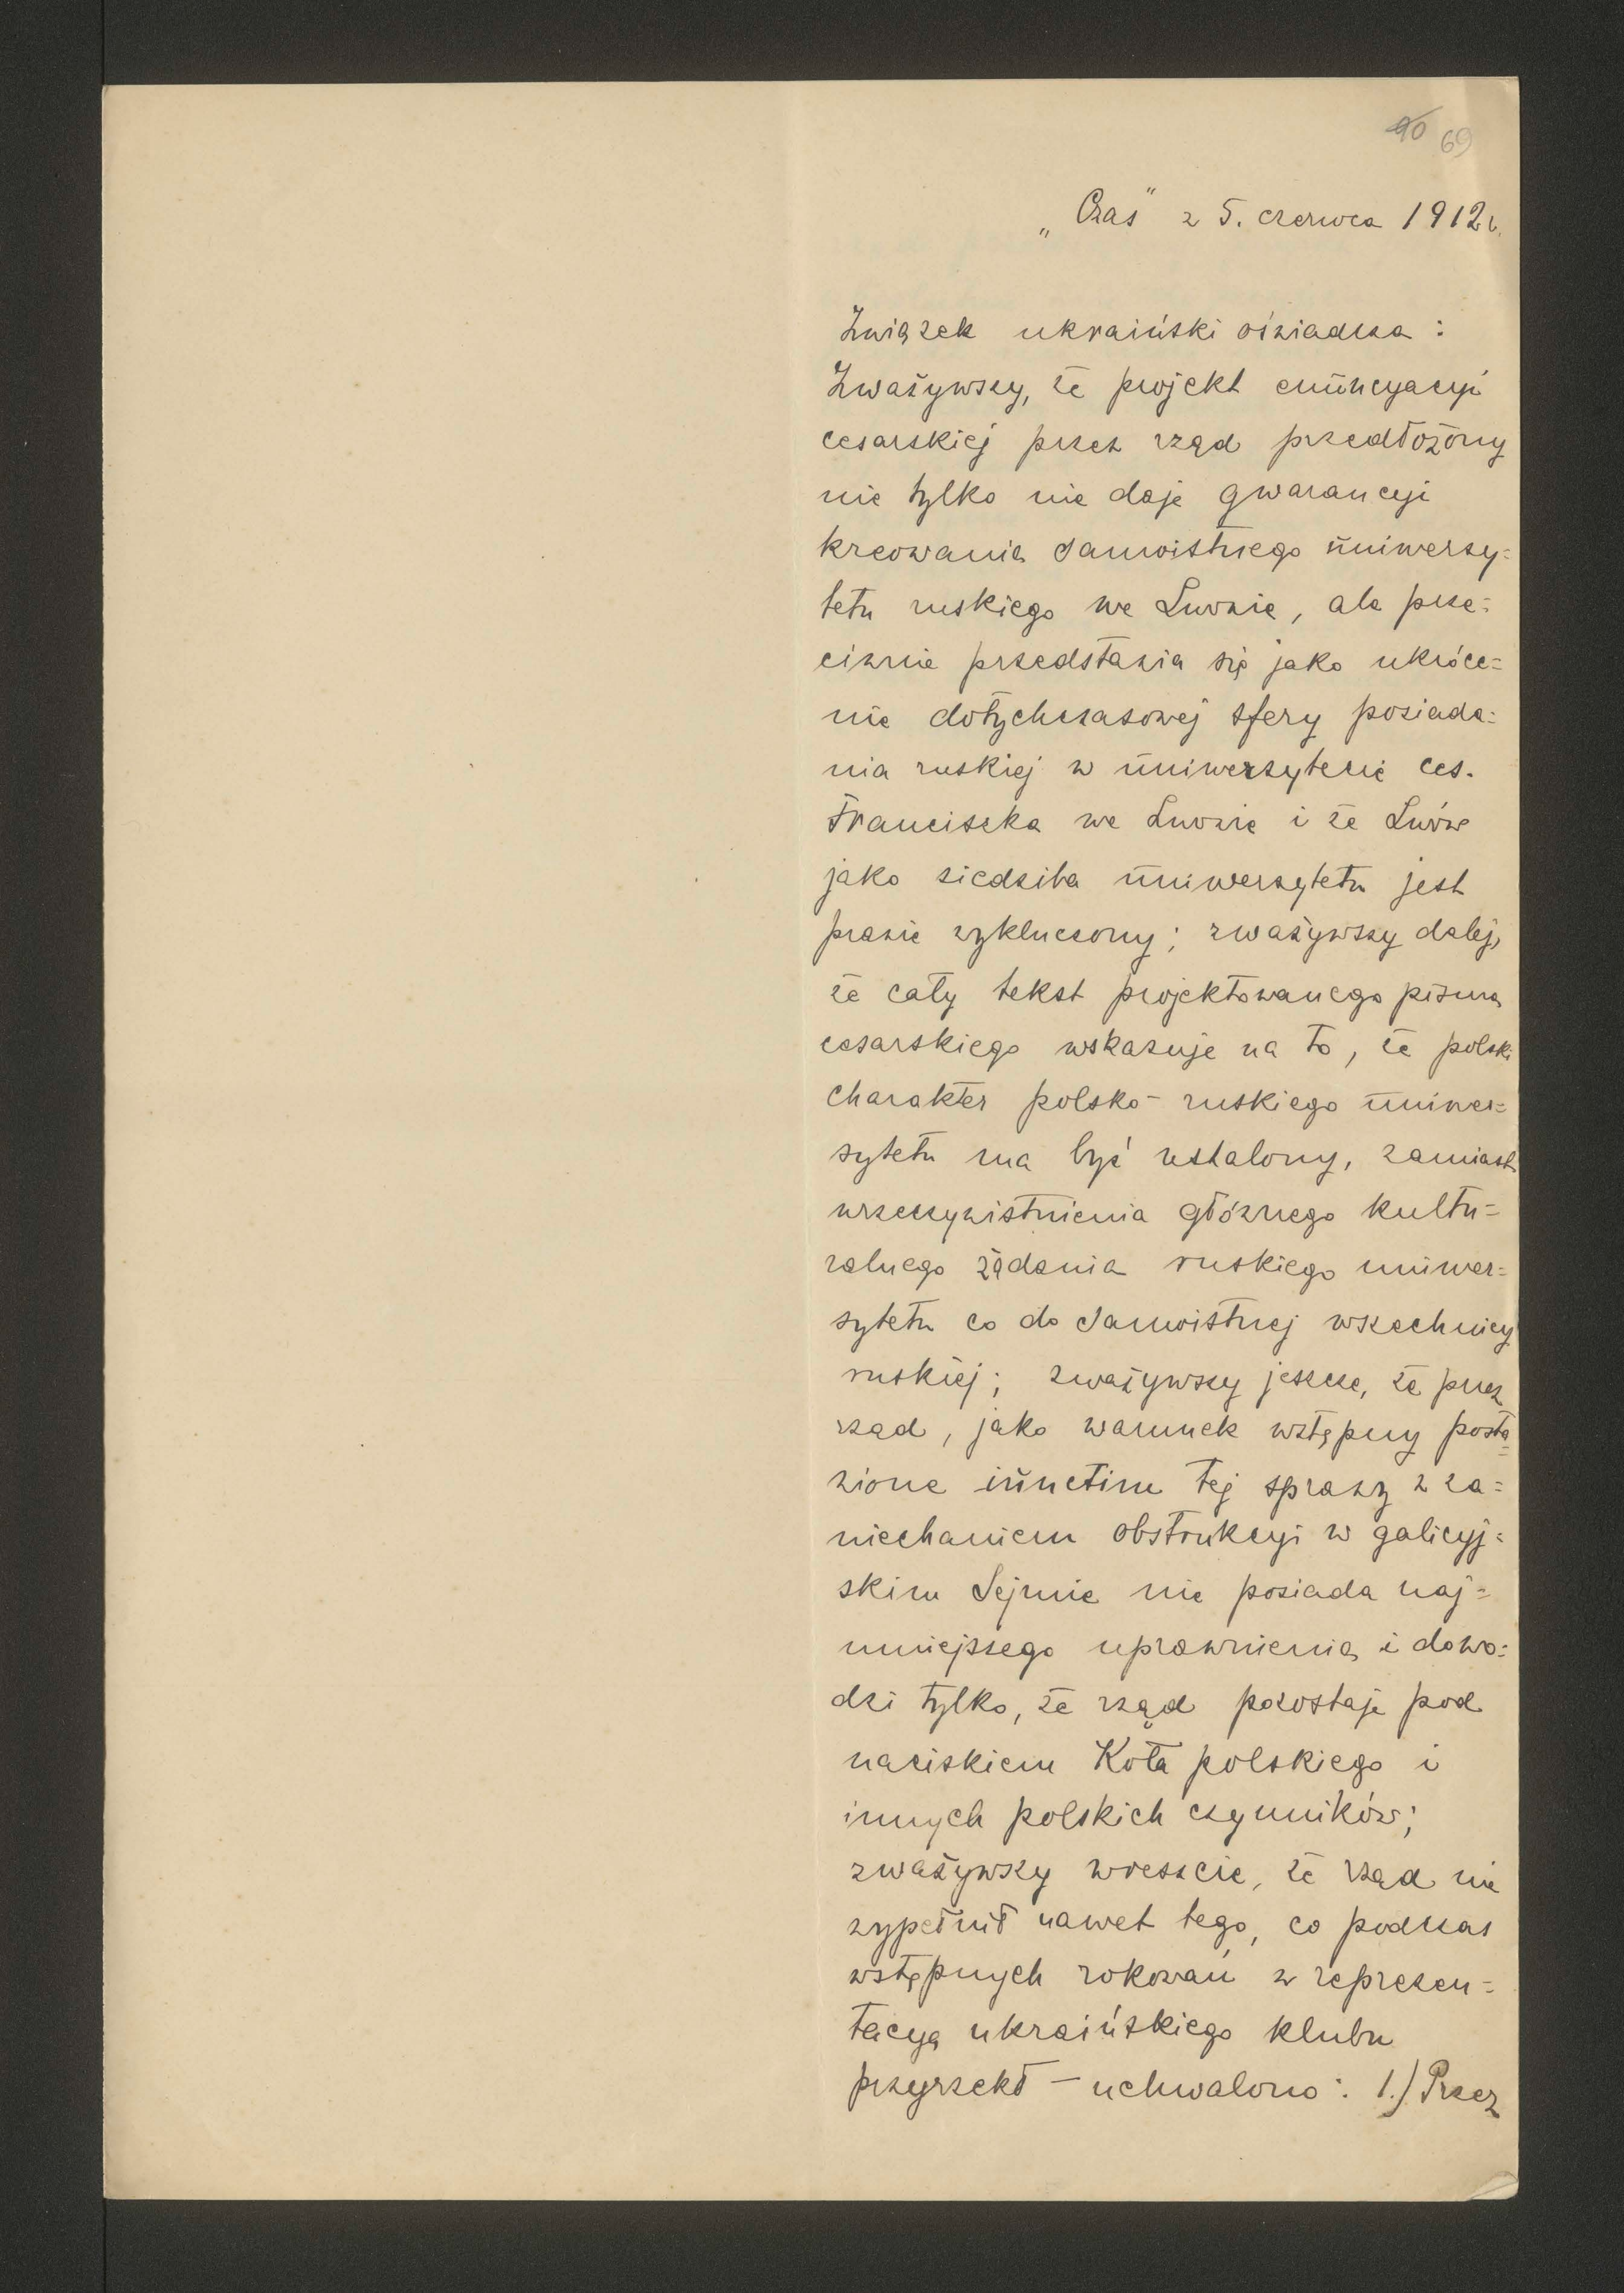 40 69
„Czas" z 5. czerwca 1912 r.
Związek ukraiński oświadcza :
Zważywszy, że projekt enuncyacyi
cesarskiej przez rząd przedłożony
nie tylko nie daje gwarancyi
kreowania samoistnego uniwersy=
tetu ruskiego we Lwowie, ale prze=
ciwnie przedstawia się jako ukróce=
nie dotychczasowej sfery posiada=
nia ruskiej w uniwersytecie ces.
Franciszka we Lwowie i że Lwów
jako siedziba uniwersytetu jest
prawie wykluczony; zważywszy dalej,
że cały tekst projektowanego pisma
cesarskiego wskazuje na to, że polski
charakter polsko-ruskiego uniwer=
sytetu ma być ustalony, zamiast
urzeczywistnienia głównego kultu=
ralnego żądania ruskiego uniwer=
sytetu co do samoistnej wszechnicy
ruskiej; zważywszy jeszcze, że przez
rząd, jako warunek wstępny posta=
wione iunctim tej sprawy z za=
niechaniem obstrukcyi w galicyj=
skim Sejmie nie posiada naj=
mniejszego uprawnienia i dowo=
dzi tylko, że rząd pozostaje pod
naciskiem Koła polskiego i
innych polskich czynników;
zważywszy wreszcie, że rząd nie
wypełnił nawet tego, co podczas
wstępnych rokowań z reprezen=
tacyą ukraińskiego klubu
przyrzekł – uchwalono : 1.) Przez